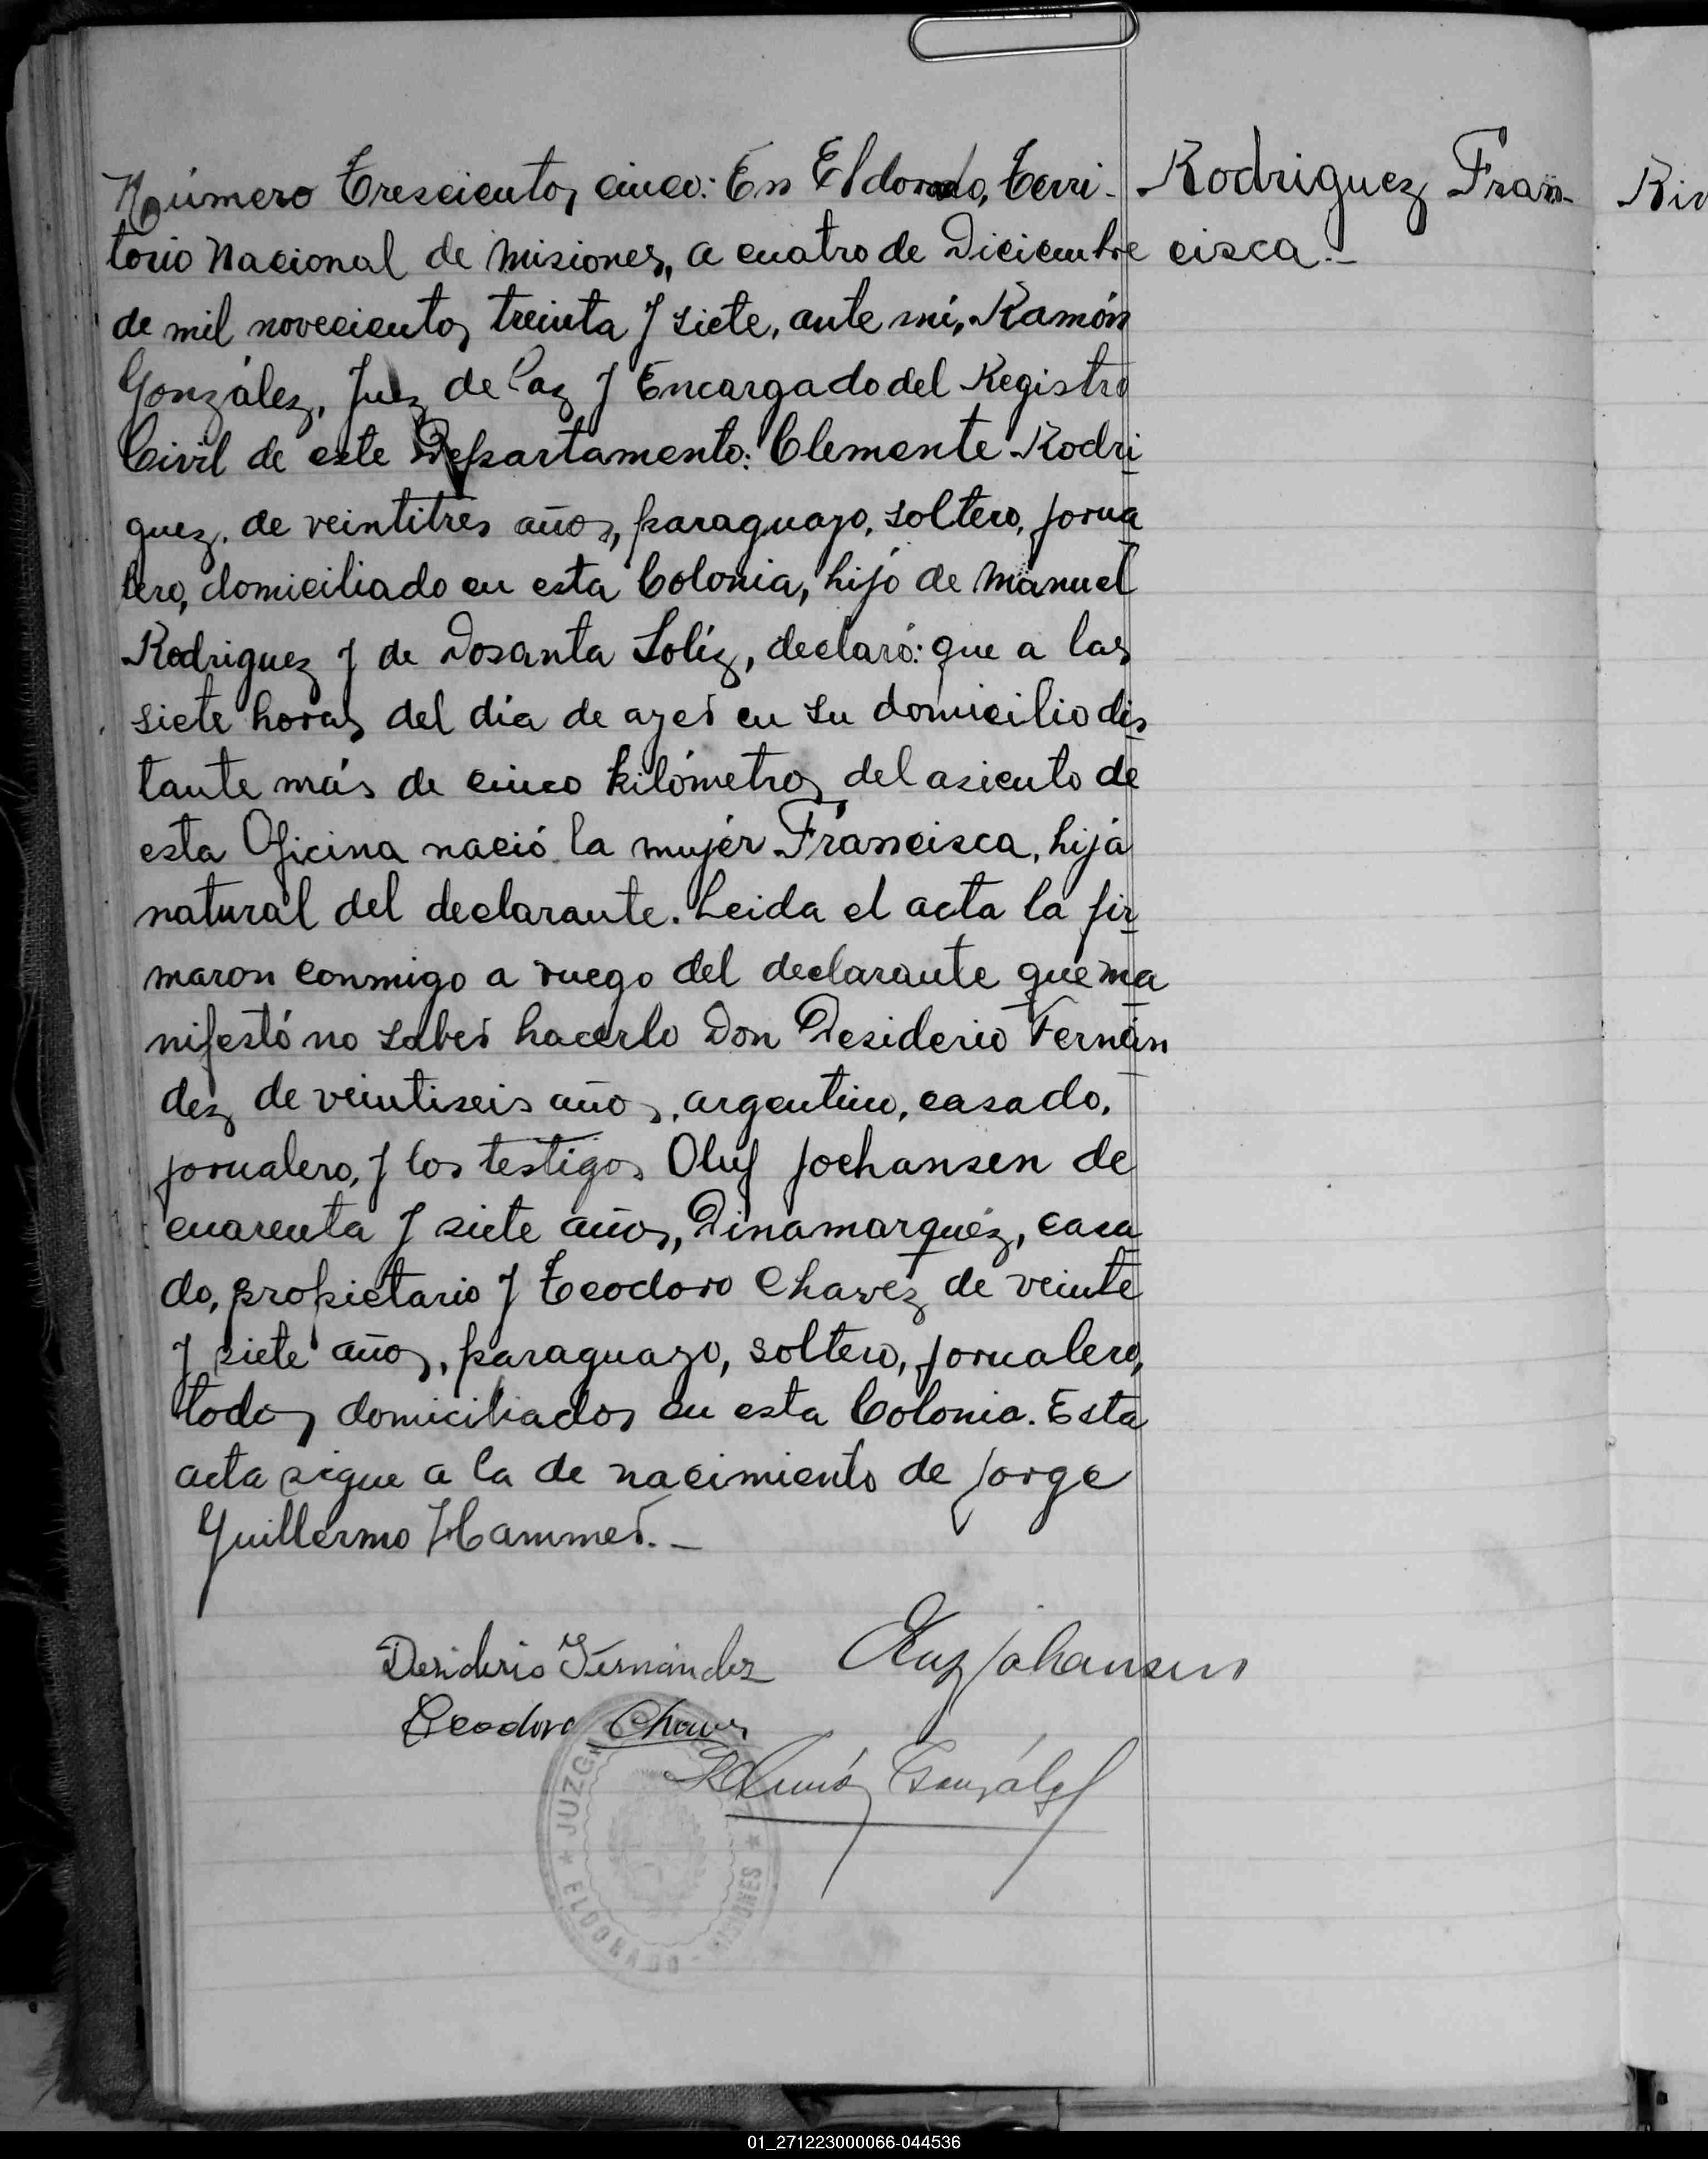 Número Trescientos cinco: En Eldorado, Terri-
torio Nacional de Misiones, a cuatro de Diciembre
de mil novecientos treinta y siete, ante mí, Ramón
González, Juez de Paz y Encargado del Registro
Civil de este Departamento: Clemente Rodri
guez, de veintitres años, paraguayo, soltero, jorna
lero, domiciliado en esta Colonia, hijo de Manuel
Rodriguez y de Dosanta Solíz, declaró: que a las
siete horas del día de ayer en su domicilio dis
tante más de cinco kilómetros del asiento de
esta Oficina nació la mujer Francisca, hija
natural del declarante. Leida el acta la fir
maron conmigo a ruego del declarante que ma
nifestó no saber hacerlo Don Desiderio Fernán
dez de veintiseis años, argentino, casado,
jornalero, y los testigos Oluf Joehansen de
cuarenta y siete años, Dinamarquéz, casa
do, propietario y Teodoro Chavez de veinte
y siete años, paraguayo, soltero, jornalero,
todos domiciliados en esta Colonia. Esta
acta sigue a la de nacimiento de Jorge
Guillermo Hammer.-
Rodriguez Fran-
cisca.-
Desiderio Fernández
Oluf Johansen
Teodoro Chavez
Ramón González
JUZG
ELDORADO - MISIONES
Riv
01_271223000066-044536